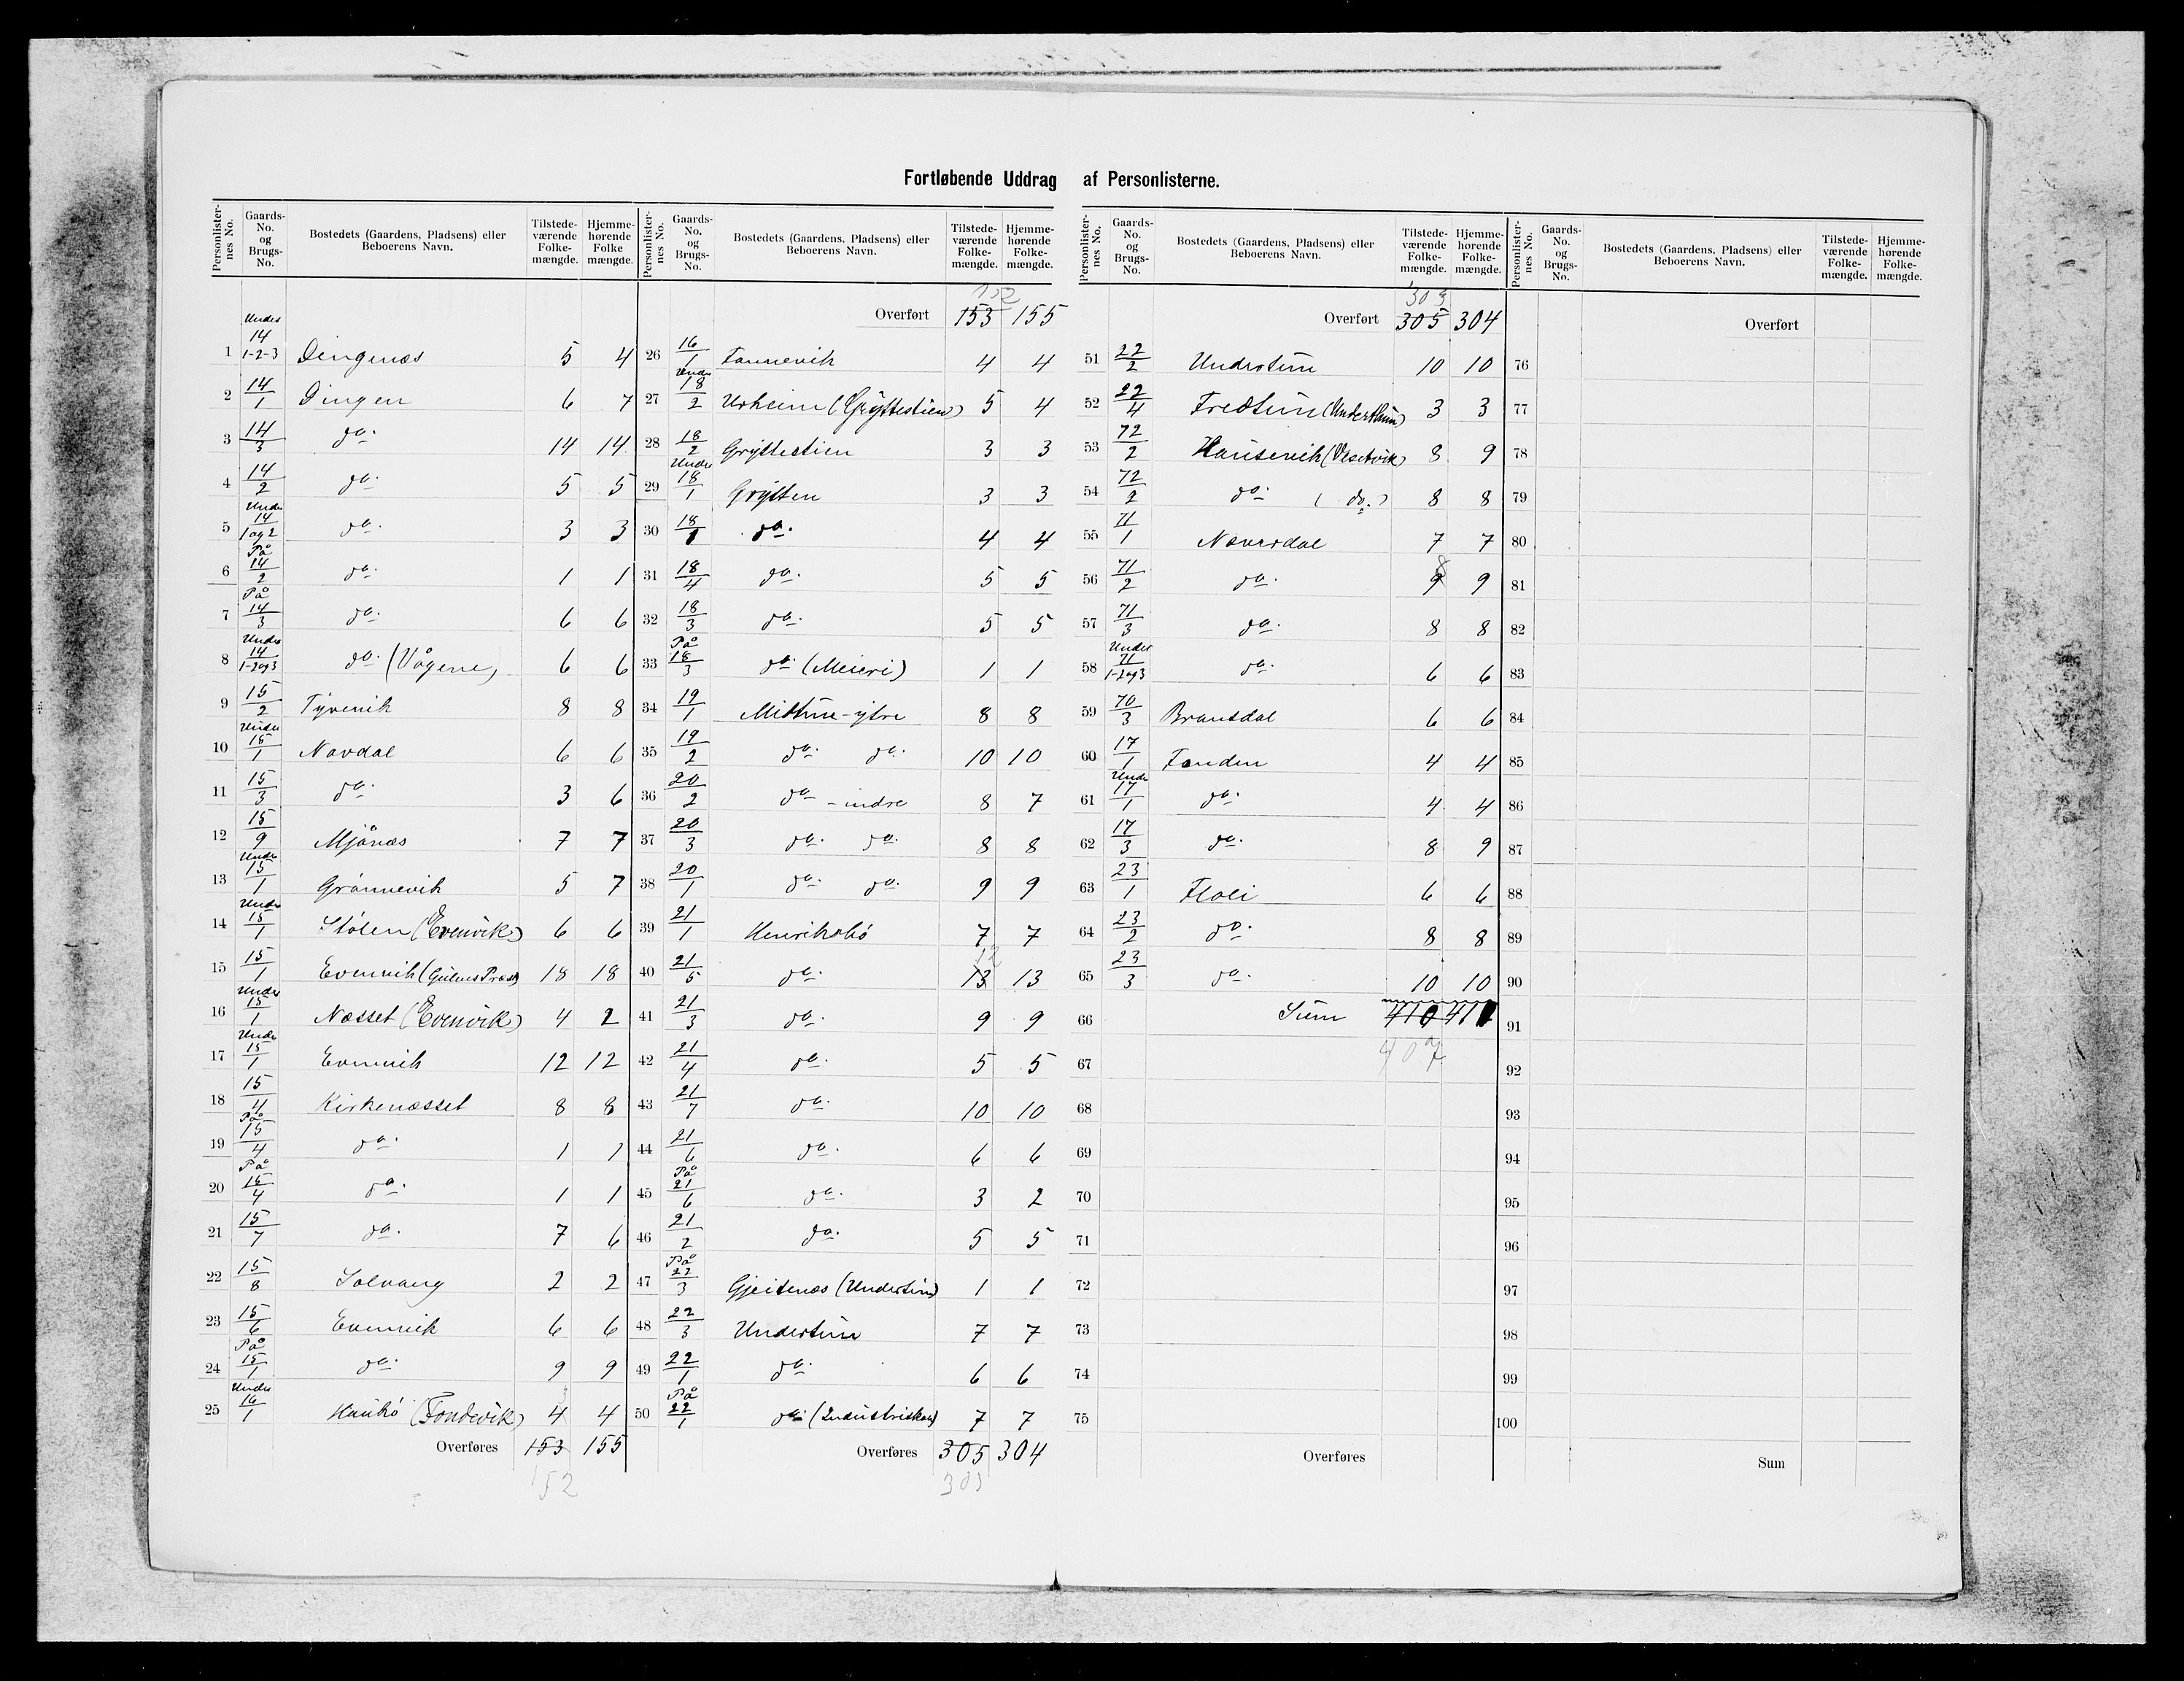 Fortløbende Uddrag af Personlisterne.
Personlister-nes No. | Gaards-No. og Brugs-No. | Bostedets (Gaardens, Pladsens) eller Beboerens Navn. | Tilstede-værende Folke-mængde. | Hjemme-hørende Folke mængde.
1 Under 14/1-2-3 Dingenæs 5 4
2 14/1 Dingen 6 7
3 14/3 do. 14 14
4 14/2 do. 5 5
5 Under 14/1 og 2 do. 3 3
6 På 14/2 do. 1 1
7 På 14/3 do. 6 6
8 Under 14/1-2og3 do. (Vågene) 6 6
9 15/2 Tyvenik 8 8
10 Under 15/1 Navdal 6 6
11 15/3 do. 3 6
12 15/9 Mjånæs 7 7
13 Under 15/1 Grønnevik 5 7
14 Under 15/1 Stølen (Evenvik) 6 6
15 15/1 Evenvik (Gulens Præst) 18 18
16 Under 15/1 Næsset (Evenvik) 4 2
17 Under 15/1 Evenvik 12 12
18 15/4 Kirkenæsset 8 8
19 På 15/4 do. 1 1
20 På 15/4 do. 1 1
21 15/7 do. 7 6
22 15/8 Solvang 2 2
23 15/6 Evenvik 6 6
24 På 15/1 do. 9 9
25 Under 16/1 Haukø (Fondevik) 4 4
Overføres 153 155
152
Personlister-nes No. | Gaards-No. og Brugs-No. | Bostedets (Gaardens, Pladsens) eller Beboerens Navn. | Tilstede-værende Folke-mængde. | Hjemme-hørende Folke-mængde.
152
Overført 153 155
26 16/1 Fannevik 4 4
27 Under 18/2 Urheim (Gryttestien) 5 4
28 18/2 Gryttestien 3 3
29 Under 18/1 Grytten 3 3
30 18/1 do. 4 4
31 18/4 do. 5 5
32 18/3 do. 5 5
33 På 18/3 do. (Meieri) 1 1
34 19/1 Mittun-ytre 8 8
35 19/2 do. do. 10 10
36 20/2 do - indre 8 7
37 20/3 do. do. 8 8
38 20/1 do. do. 9 9
39 21/1 Henriksbø 7 7
12
40 21/5 do. 13 13
41 21/3 do. 9 9
42 21/4 do. 5 5
43 21/7 do. 10 10
44 21/6 do. 6 6
45 På 21/6 do. 3 2
46 21/2 do. 5 5
47 På 22/3 Gjeitenæs (Undertun) 1 1
48 22/3 Undertun 7 7
49 22/1 do. 6 6
50 På 22/1 do. (Industriskole) 7 7
Overføres 305 304
303
Personlister-nes No. | Gaards-No. og Brugs-No. | Bostedets (Gaardens, Pladsens) eller Beboerens Navn. | Tilstede-værende Folke-mængde. | Hjemme-hørende Folke-mængde.
303
Overført 305 304
51 22/2 Undertun 10 10
52 22/4 Fredtun (Underthun) 3 3
53 72/2 Hausevik (Vesetvik) 8 9
54 72/2 do. (do.) 8 8
55 71/1 Næversdal 7 7
8
56 71/2 do. 9 9
57 71/3 do. 8 8
58 Under 71/1-2og3 do. 6 6
59 70/3 Bransdal 6 6
60 17/1 Fonden 4 4
61 Under 17/1 do. 4 4
62 17/3 do. 8 9
63 23/1 Floli 6 6
64 23/2 do. 8 8
65 23/3 do. 10 10
66 Sum 410 411
67 407
68
69
70
71
72
73
74
75
Overføres
Personlister-nes No. | Gaards-No. og Brugs-No. | Bostedets (Gaardens, Pladsens) eller Beboerens Navn. | Tilstede-værende Folke-mængde. | Hjemme-hørende Folke-mængde.
Overført
76
77
78
79
80
81
82
83
84
85
86
87
88
89
90
91
92
93
94
95
96
97
98
99
100
Sum